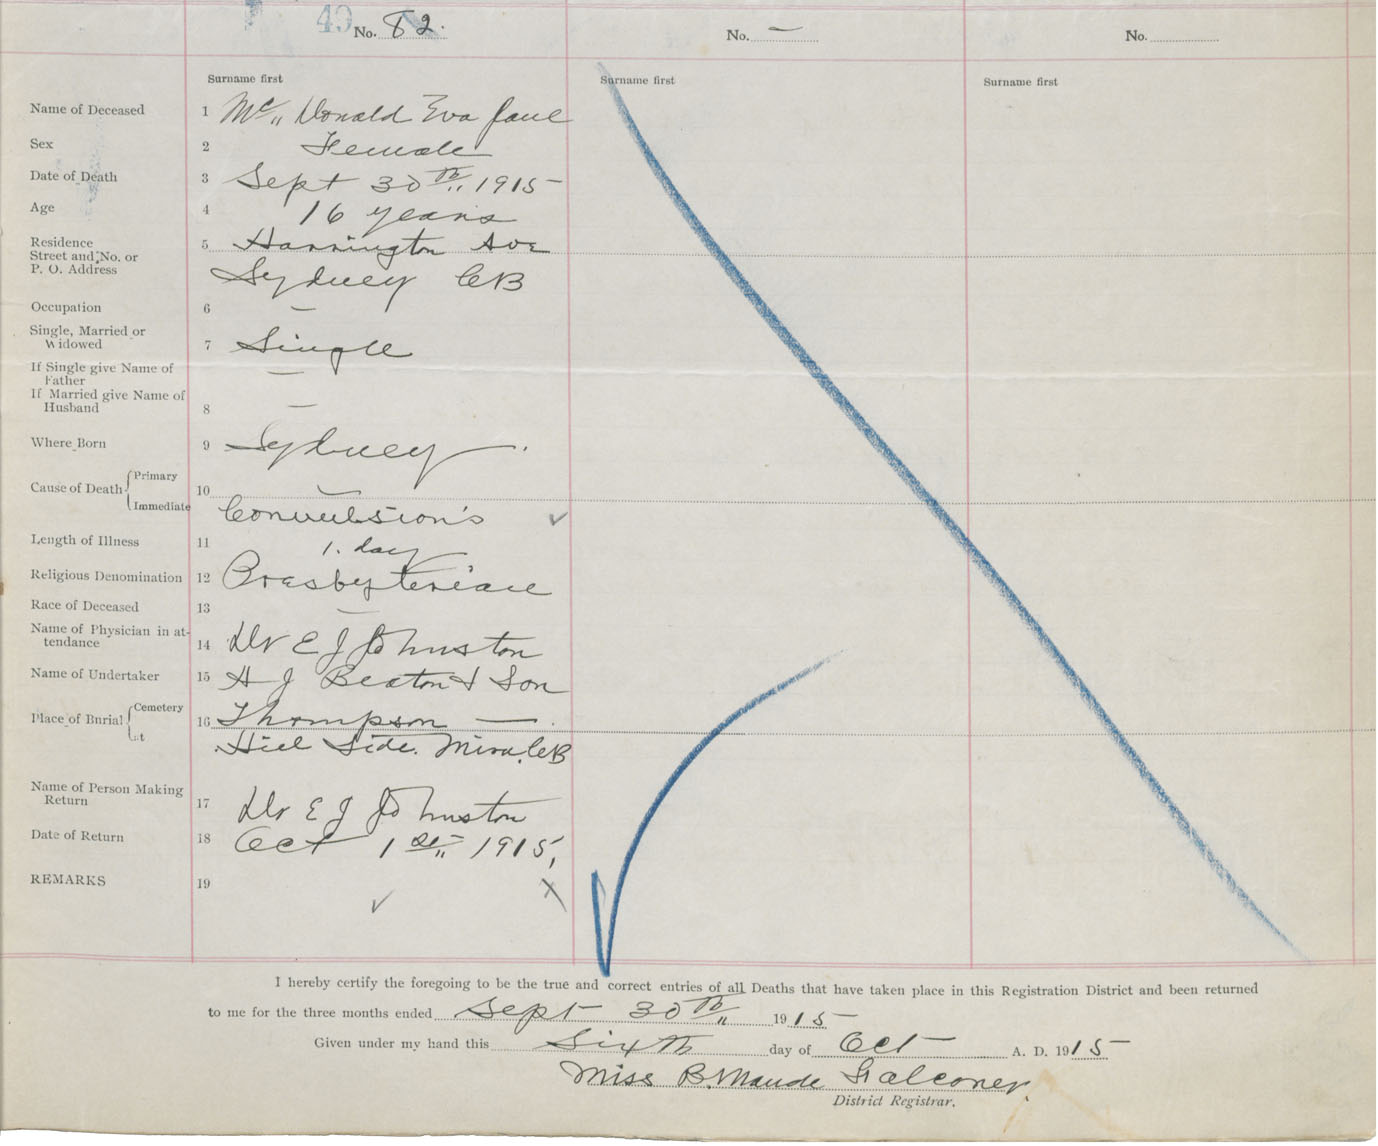 49 No. 82. No. — No.
Surname first Surname first Surname first
Name of Deceased 1 Mc,, Donald Eva Jane
Sex 2 Female
Date of Death 3 Sept 30th,, 1915
Age 4 16 years
Residence 5 Harrington Ave
Street and No. or
P. O. Address Sydney CB
Occupation 6 —
Single, Married or
Widowed 7 Single
If Single give Name of
Father —
If Married give Name of
Husband 8 —
Where Born 9 Sydney.
Cause of Death { Primary 10 —
Immediate Convulsion's
Length of Illness 11 1. day
Religious Denomination 12 Presbyterian
Race of Deceased 13 —
Name of Physician in at-
tendance 14 Dr E J Johnston
Name of Undertaker 15 A J Beaton & Son
Place of Burial { Cemetery 16 Thompson —.
Lot Hill Side. Mira, CB
Name of Person Making
Return 17 Dr E J Johnston
Date of Return 18 Oct 1st,, 1915,
REMARKS 19
I hereby certify the foregoing to be the true and correct entries of all Deaths that have taken place in this Registration District and been returned
to me for the three months ended Sept 30th,, 1915
Given under my hand this Sixth day of Oct A. D. 1915
Miss B. Maude Falconer.
District Registrar.